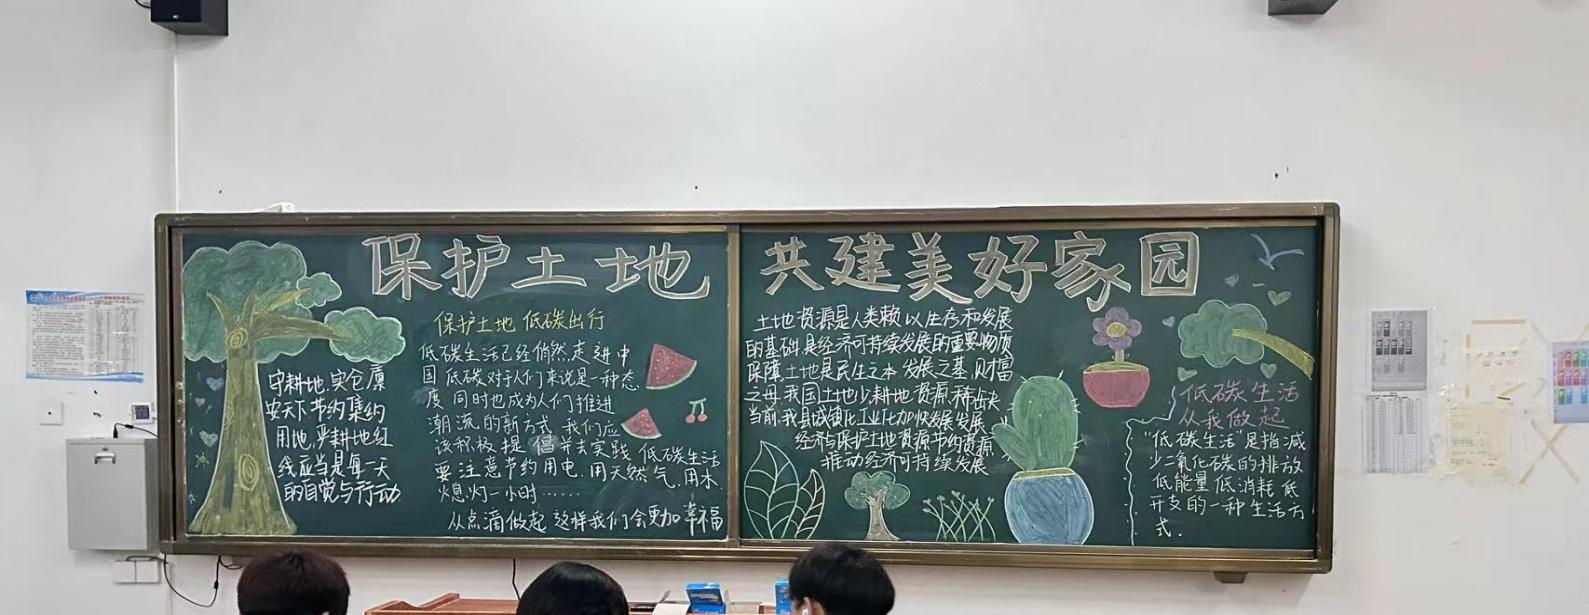 保护土地 共建美好家园
守耕地,实仓廪
安天下节约集约
用地,严耕地红
线应当是每一天
的自觉与行动
保护土地 低碳出行
低碳生活已经悄然走进中
国 低碳对于人们来说是一种态
度 同时也成为人们推进
潮流的新方式 我们应
该积极提倡并去实践 低碳生活
要注意节约用电.用天然气.用水
熄灯一小时……
从点滴做起 这样我们会更加幸福
土地资源是人类赖以生存和发展
的基础,是经济可持续发展的重要物质
保障,土地是民生之本 发展之基 财富
之母,我国土地少,耕地资源稀缺
当前,我县城镇化工业化加快发展,发展
经济与保护土地资源节约资源
推动经济可持续发展
低碳生活
从我做起
"低碳生活"是指减
少二氧化碳的排放
低能量 低消耗 低
开支的一种生活方
式.